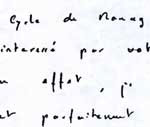 Cycle de Manag
interessé par vot
n effet, j'
et parfaitement